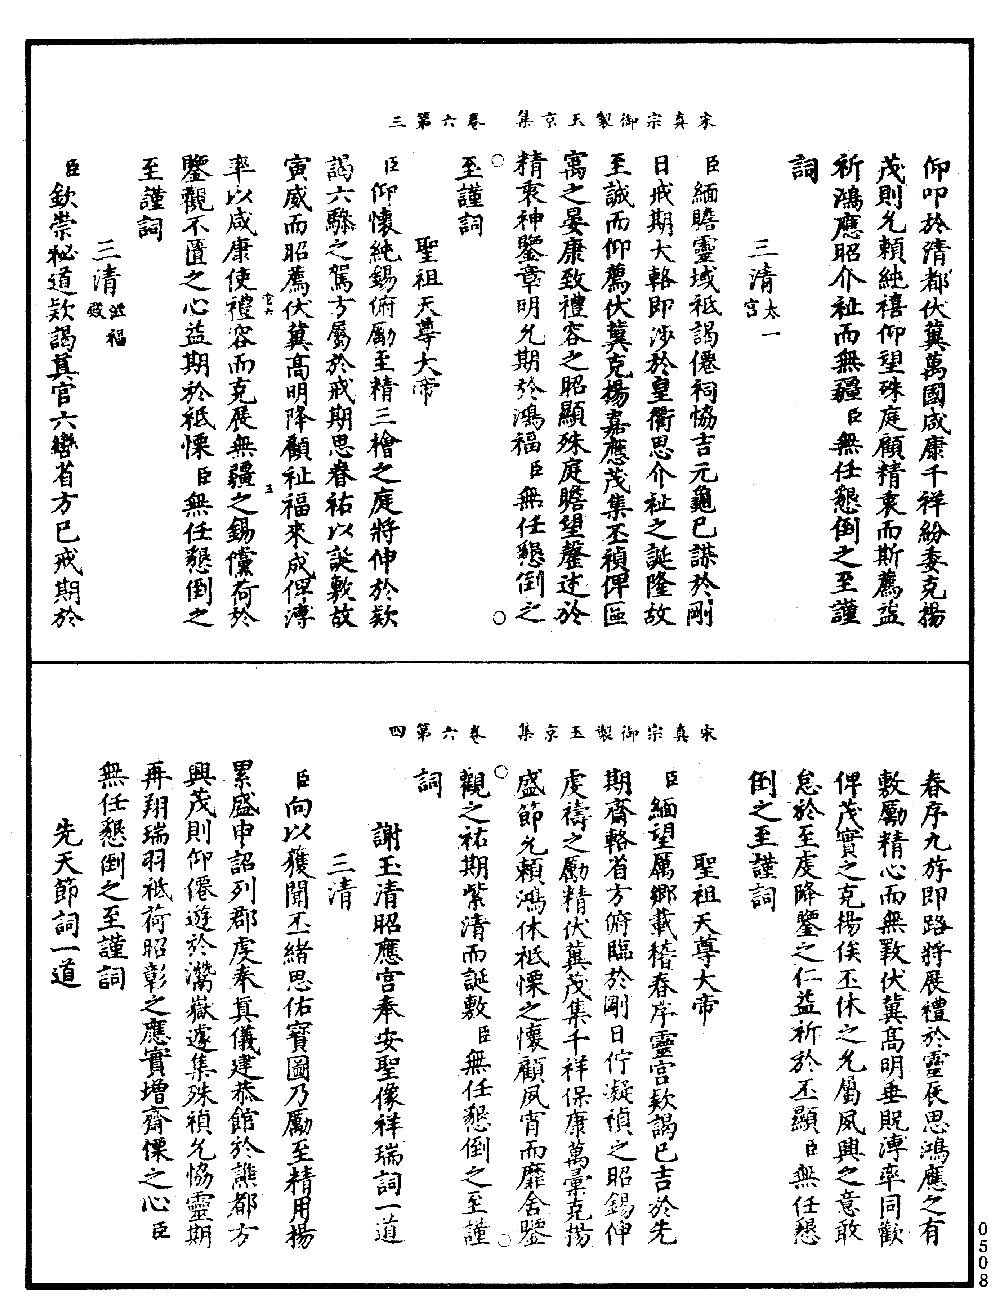 仰叩於清都伏冀萬國咸康千祥紛委克揚
茂則允賴純禧仰望殊庭顧精衷而斯薦益
祈鴻應昭介祉而無疆臣無任懇倒之至謹
詞
三清太一宮
臣緬瞻靈域祗謁僊祠恊吉元龜已諆於剛
日戒期大輅即涉於皇衢思介祉之誕隆故
至誠而仰薦伏冀克揚嘉應茂集丕禎俾區
寓之晏康致禮容之昭顯殊庭瞻望罄述於
精衷神鑒章明允期於鴻福臣無任懇倒之
至謹詞
宋真宗御製玉京集 卷六第三
聖祖天尊大帝
臣仰懷純錫俯勵至精三檜之庭將伸於欵
謁六騑之駕方屬於戒期思眷祐以誕敷故
寅威而昭薦伏冀高明降顧祉福來成俾溥
宮六 五
率以咸康使禮容而克展無疆之錫儻荷於
鑒觀不匱之心益期於祗慄臣無任懇倒之
至謹詞
三清遊福殿
臣欽崇秘道欵謁真官六轡省方已戒期於
春序九斿即路將展禮於靈辰思鴻應之有
敷勵精心而無斁伏冀高明垂貺溥率同歡
俾茂實之克揚俟丕休之允屬夙興之意敢
怠於至虔降鑒之仁益祈於丕顯臣無任懇
倒之至謹詞
聖祖天尊大帝
臣緬望厲鄉載稽春序靈宮欵謁已吉於先
期齋輅省方俯臨於剛日佇凝禎之昭錫伸
虔禱之勵精伏冀茂集千祥保康萬彙克揚
盛節允賴鴻休祗慄之懷顧夙宵而靡舍鑒
觀之祐期紫清而誕敷臣無任懇倒之至謹
詞
宋真宗御製玉京集 卷六第四
謝玉清昭應宮奉安聖像祥瑞詞一道
三清
臣向以獲聞丕緒思佑寶圖乃勵至精用揚
累盛申詔列郡虔奉真儀建恭館於譙都方
興茂則仰僊遊於灊嶽遽集殊禎允恊靈期
再翔瑞羽祗荷昭彰之應實增齋慄之心臣
無任懇倒之至謹詞
先天節詞一道
0508